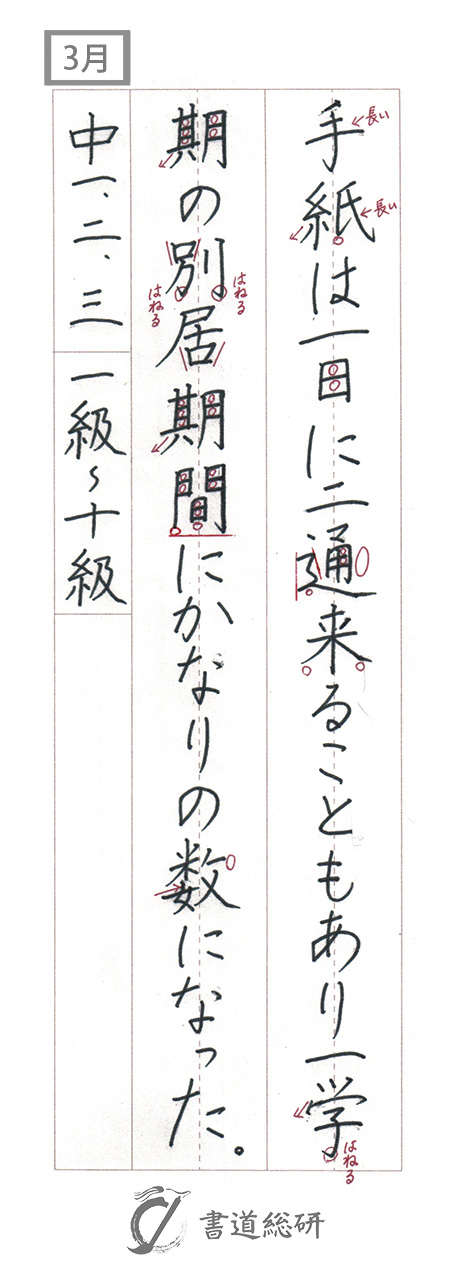 3月
手紙は一日に二通来ることもあり一学
期の別居期間にかなりの数になった。
中一、二、三 一級~十級
長い
長い
はねる
はねる
はねる
書道総研